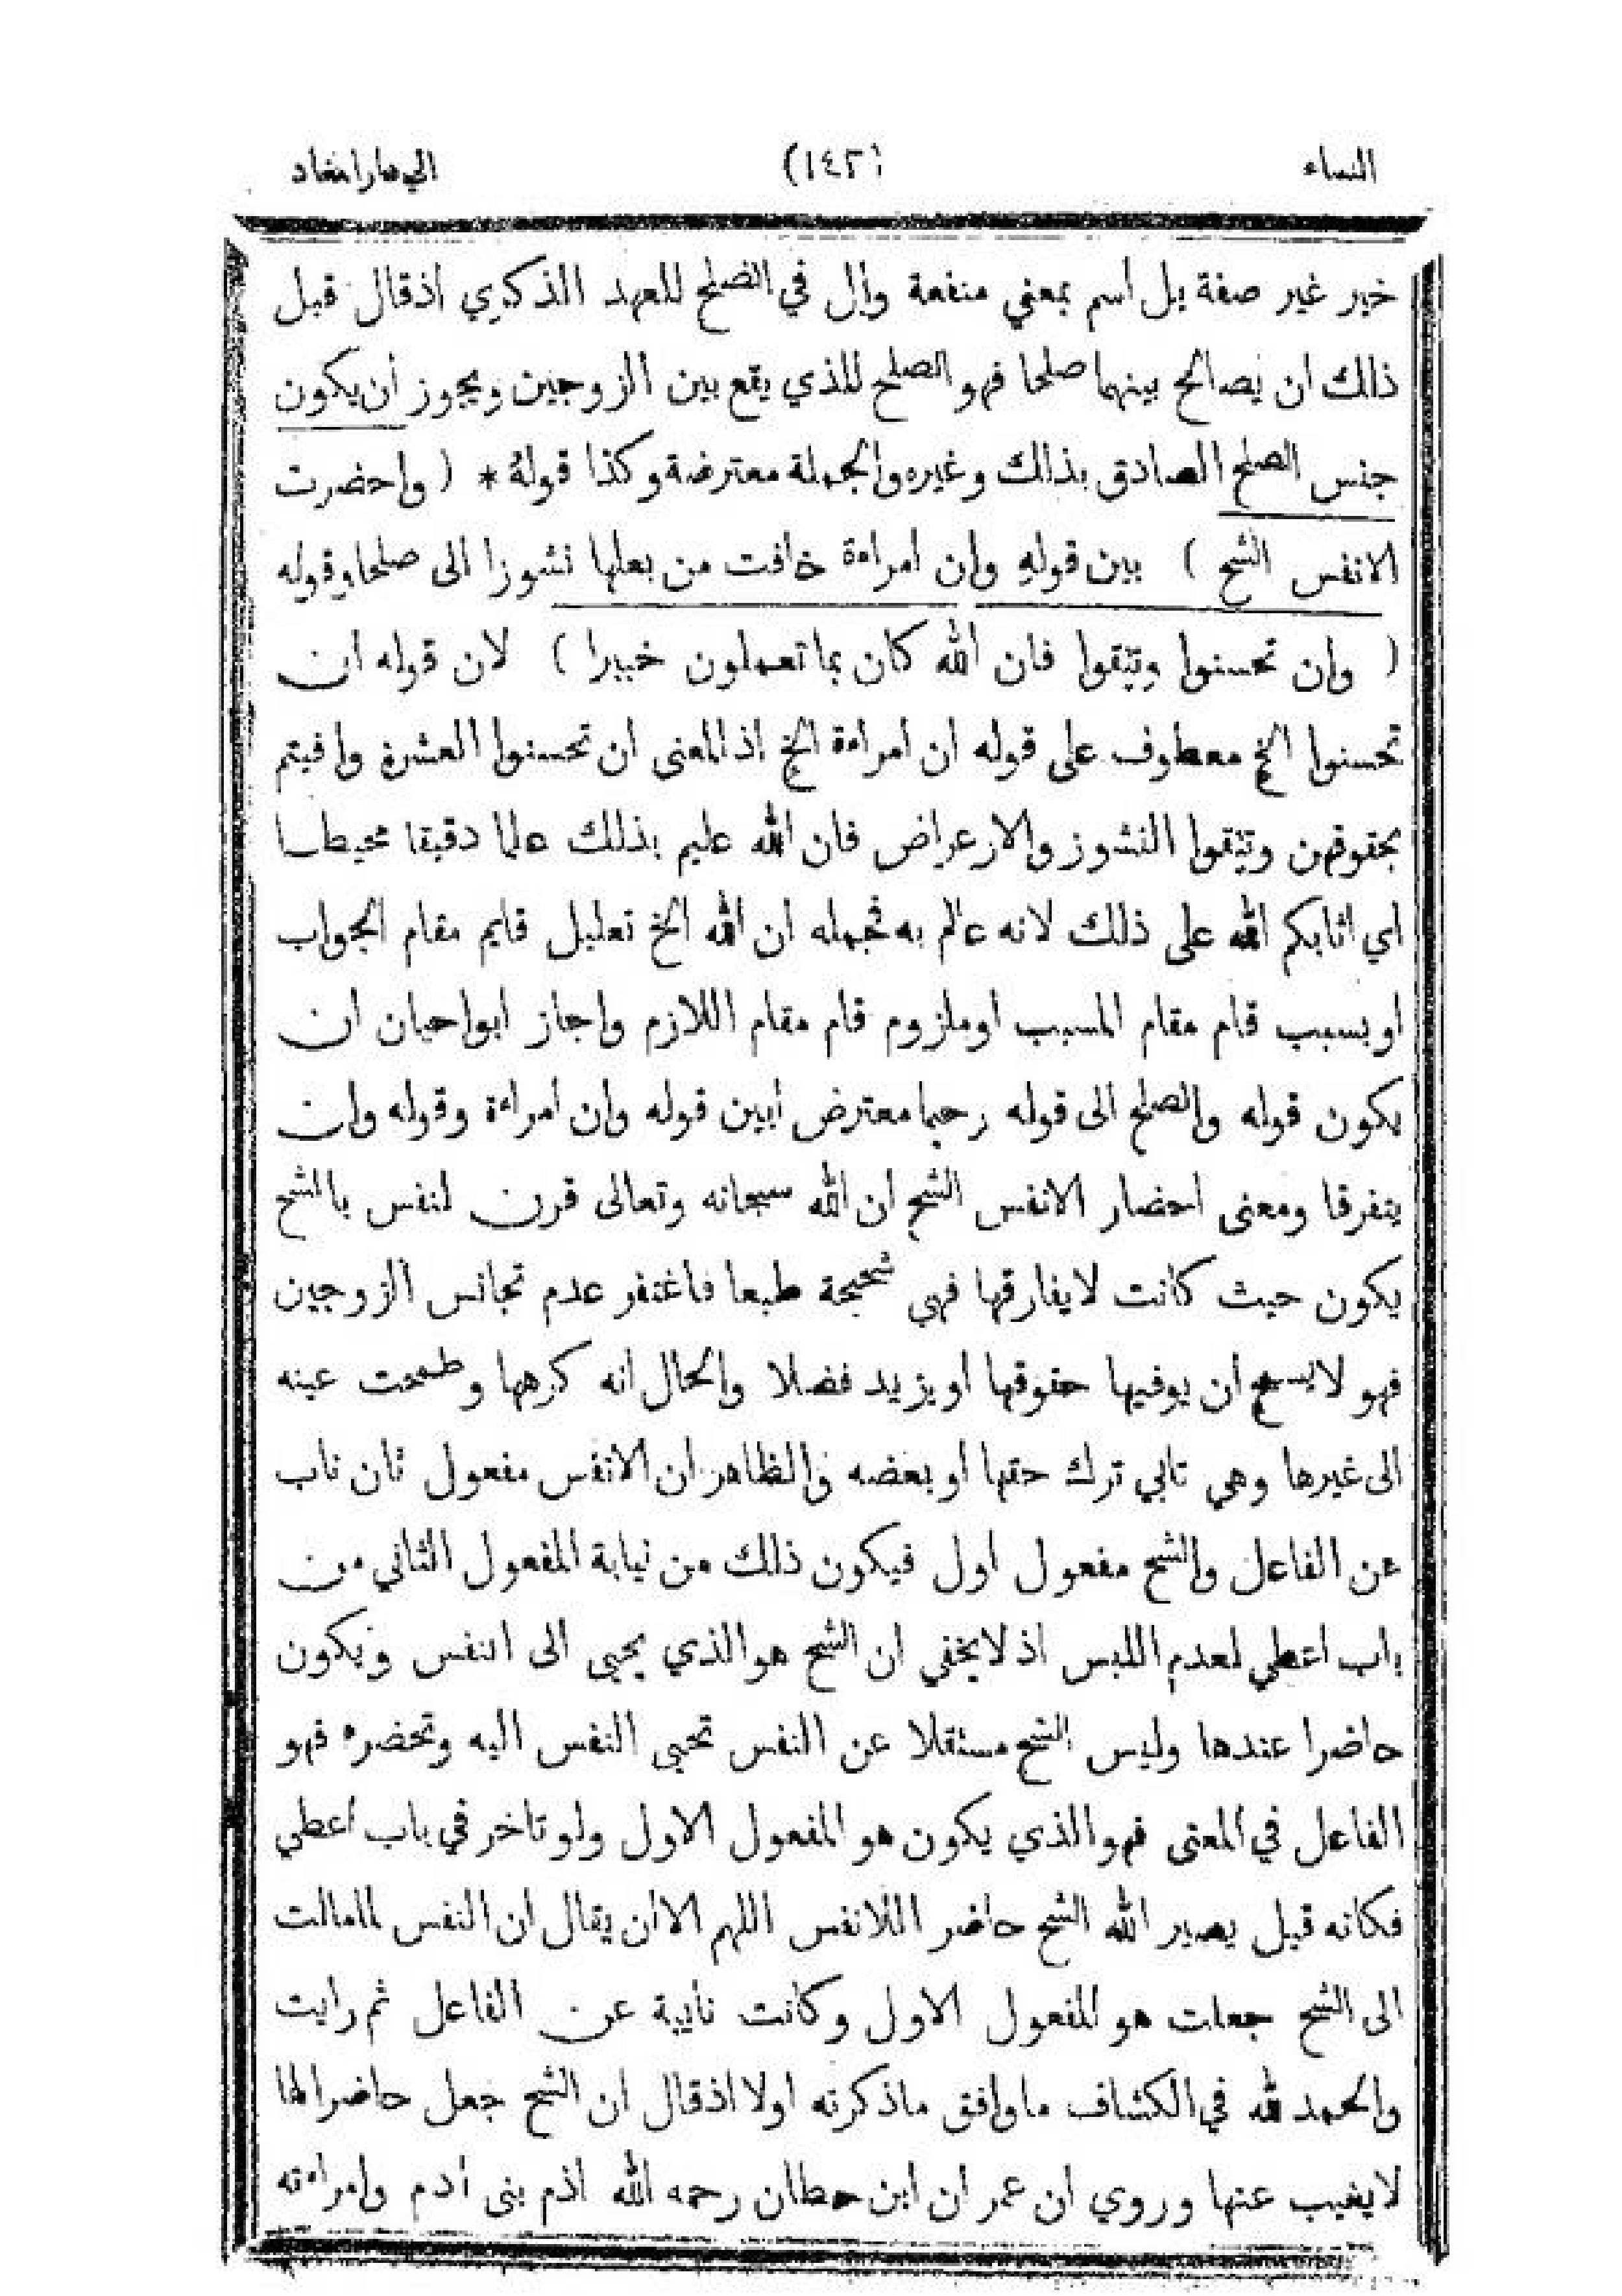 النساء (١٤٢)
خير غير صفة بل اسم بمعني منفعة وال في الصلح للعهد الذكري اذ قال قبل
ذلك ان يصالح بينهما صلحا فهو الصلح للذي يقع بين الزوجين ويجوز أن يكون
جنس الصلح الصادق بذلك وغيره والجملة معترضة وكذا قوله * ( واحضرت
الانفس الشح ) بين قوله وان امراءة خافت من بعلها نشوزا الى صلحا وقوله
( وان تحسنوا وتتقوا فان الله كان بما تعملون خبيرا ) لان قوله ان
تحسنوا الخ معطوف على قوله ان امراءة الخ اذ المعنى ان تحسنوا العشرة وافيتم
بحقوقهن وتتقوا النشوز والارعراض فان الله عليم بذلك علما دقيقا محيطا
اي اثابكم الله على ذلك لانه عالم به فجمله ان الله الخ تعليل قايم مقام الجواب
او بسبب قام مقام المسبب او ملزوم قام مقام اللازم واجاز ابوا حيان ان
يكون قوله والصلح الى قوله رحيما معترض ابين قوله وان امراءة وقوله وان
يتفرقا ومعنى احضار الانفس الشح ان الله سبحانه وتعالى قرن لنفس بالشح
يكون حيث كانت لا يفارقها فهي شحيحة طبعا فاغتفر عدم تجانس الزوجين
فهو لا يسمح ان يوفيها حقوقها او يزيد فضلا والحال انه كرهها وطمحت عينه
الى غيرها وهي تابي ترك حقها او بعضه والظاهر ان الانفس مفعول ثان ناب
عن الفاعل والشح مفعول اول فيكون ذلك من نيابة المفعول الثاني من
باب اعطي لعدم اللبس اذ لا يخفي ان الشح هو الذي يجيى الى النفس ويكون
حاضرا عندها وليس الشح مستقلا عن النفس تجيى النفس اليه وتحضره فهو
الفاعل في المعنى فهو الذي يكون هو المفعول الاول ولو تاخر في باب اعطي
فكانه قيل يصير الله الشح حاضر اللانفس اللهم الا ان يقال ان النفس لما مالت
الى الشح جعلت هو المفعول الاول وكانت نايبة عن الفاعل ثم رايت
والحمد لله في الكشاف ما وافق ما ذكرته اولا اذ قال ان الشح جعل حاضرا لها
لا يغيب عنها وروي ان عمر ان ابن حطان رحمه الله اذم بنى أدم وامراءته